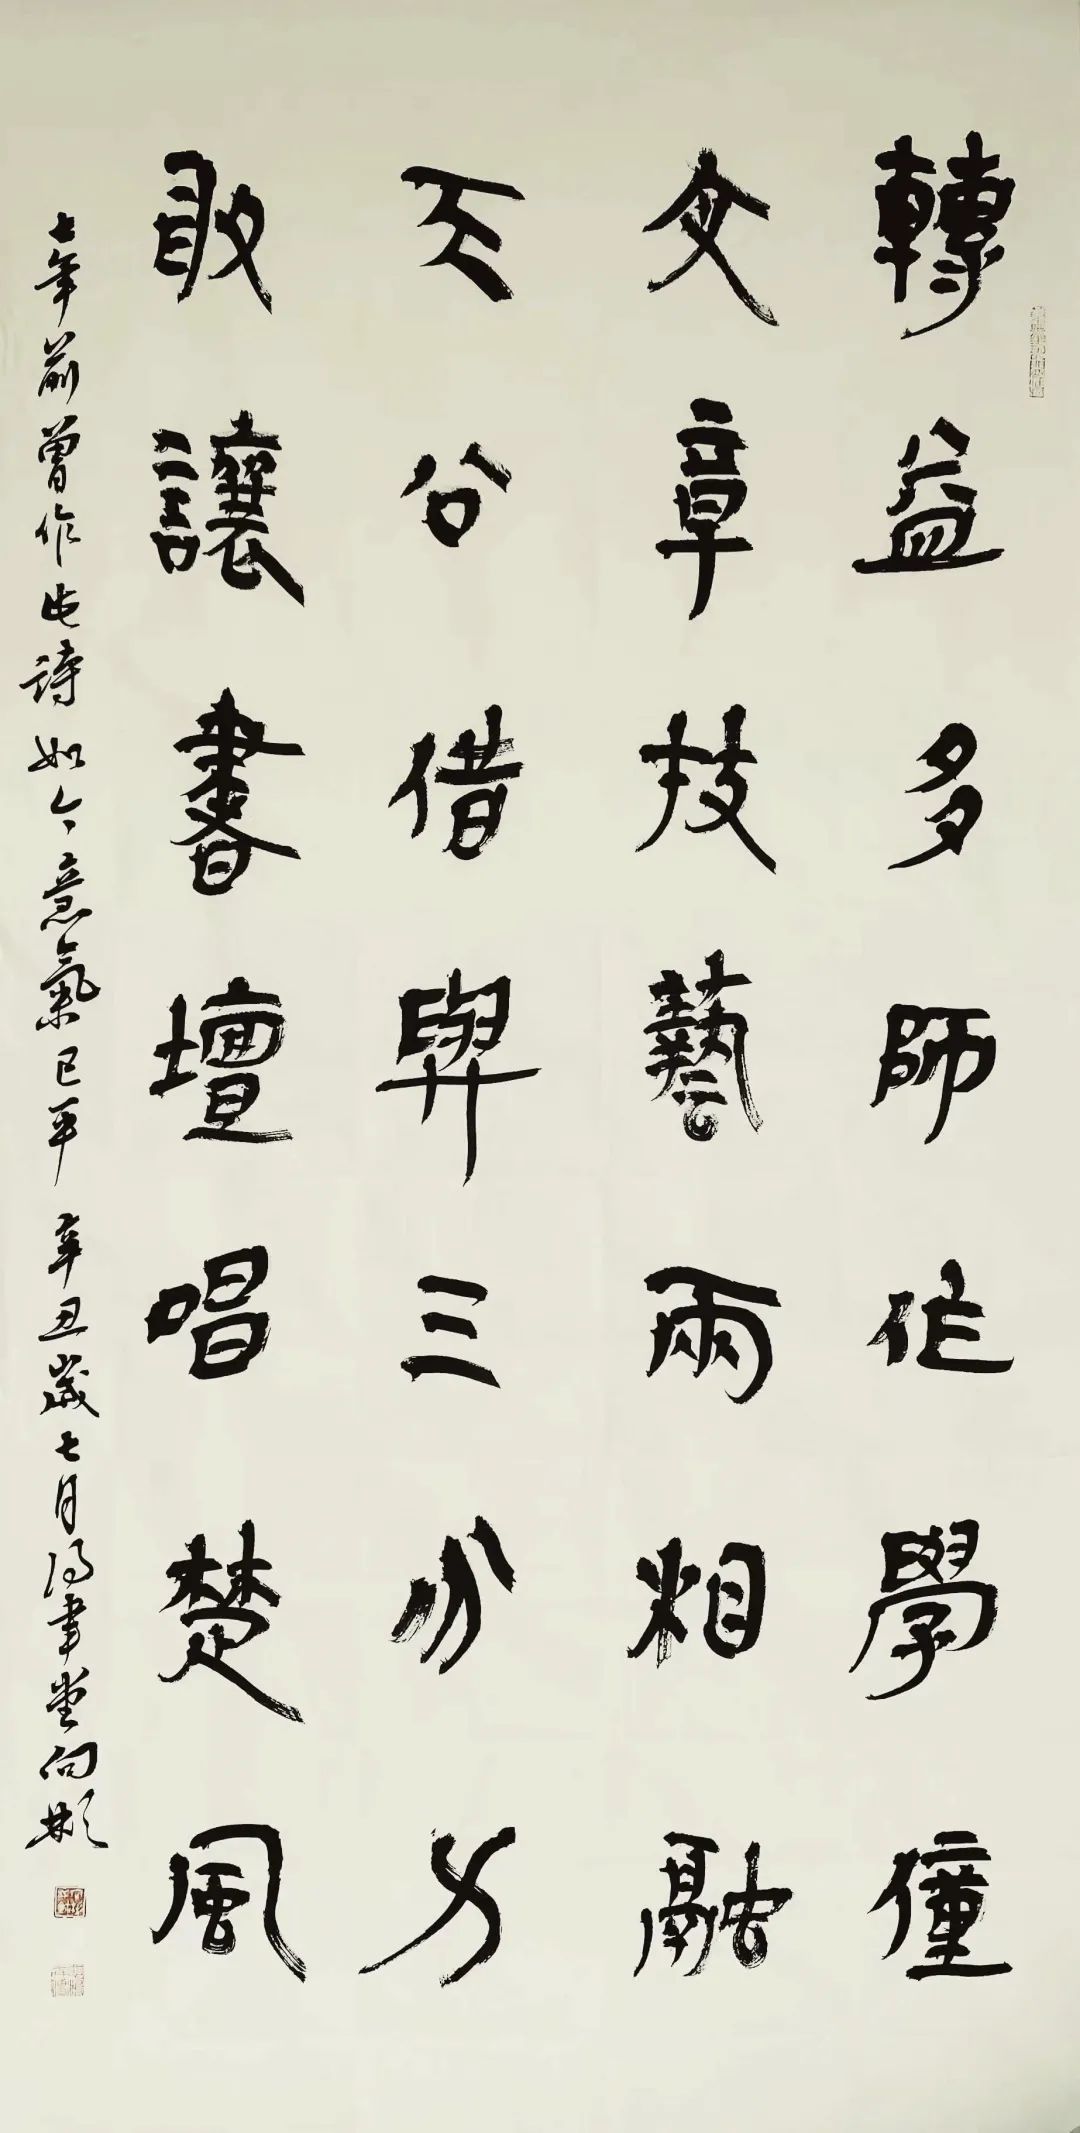 轉益多師作學僮
文章技藝兩相融
天公借與三分力
敢讓書壇唱楚風
七年前曾作此詩如今意氣已平 辛丑歲七月聿堂向彬